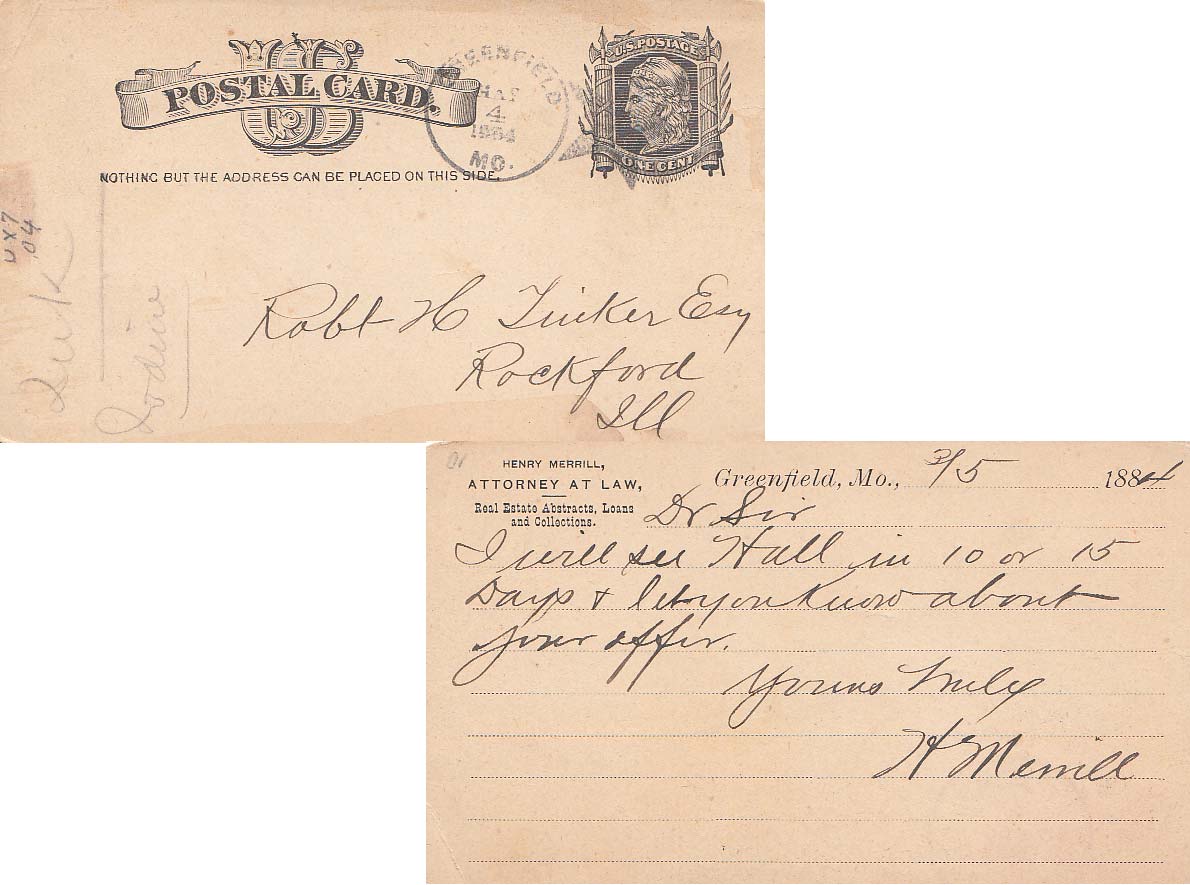 US
POSTAL CARD.
NOTHING BUT THE ADDRESS CAN BE PLACED ON THIS SIDE.
GREENFIELD
MAR
4
1884
MO.
U.S. POSTAGE
ONE CENT
UX7
04
Robt H Tinker Esq
Rockford
Ill
HENRY MERRILL,
ATTORNEY AT LAW,
Real Estate Abstracts, Loans
and Collections.
Greenfield, Mo., 3/5 1884
Dr Sir
I will see Hall in 10 or 15
Days & let you know about
your offer.
Yours Truly
H Merrill